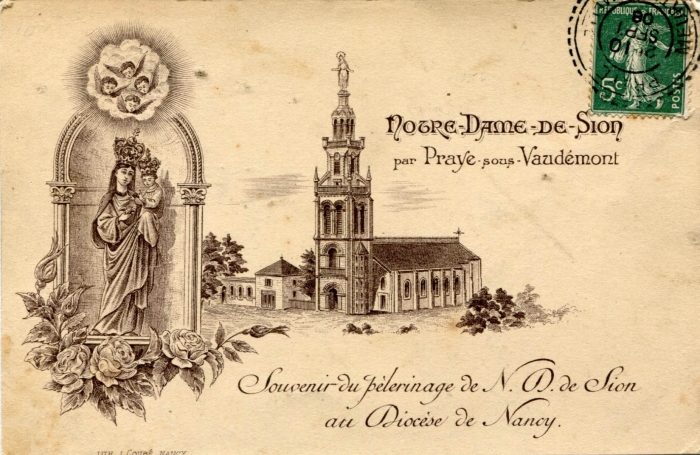 RÉPUBLIQUE FRANÇAISE
5c
POSTES
10
SEPT
08
NOTRE-DAME-DE-SION
par Praye-sous-Vaudémont
Souvenir du pèlerinage de N. D. de Sion
au Diocèse de Nancy.
LITH. NANCY